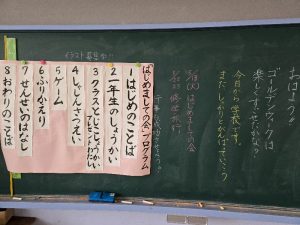 おはよう!!
ゴールデンウィークは
楽しくすごせたかな?
今日から学校です。
またしっかりとがんばっていこう
(火) はじめましての会
修学旅行
はじめましての会 プログラム
1 はじめのことば
2 一年生のしょうかい
3 クラスとじこしょうかい
4 しゃしんさつえい
5 ゲーム
6 ふりかえり
7 せんせいのはなし
8 おわりのことば